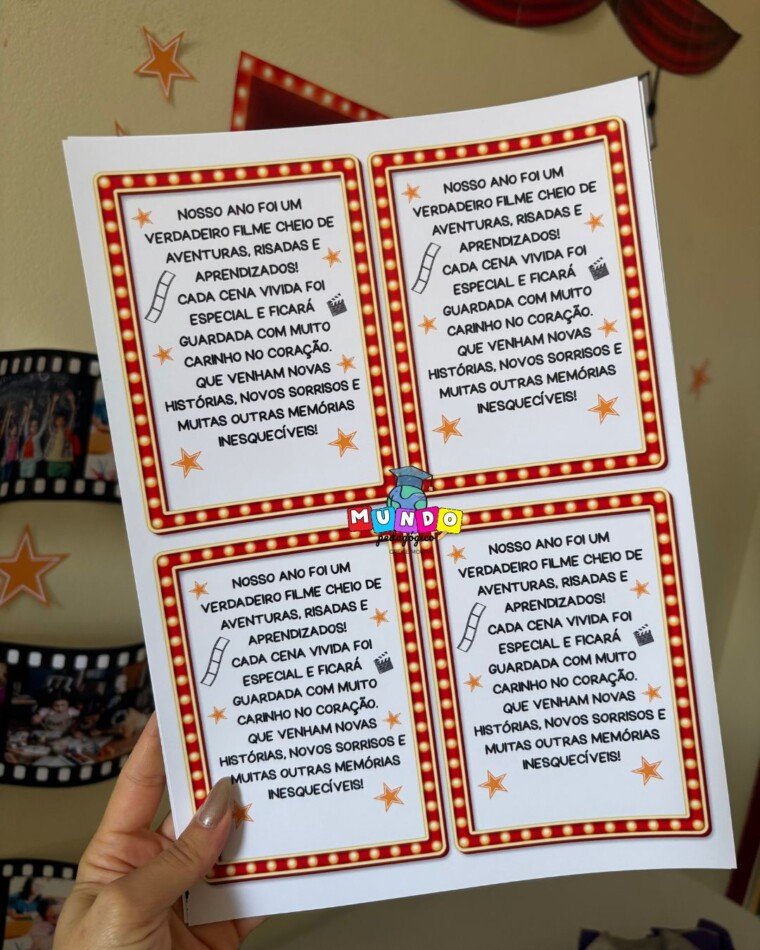 NOSSO ANO FOI UM
VERDADEIRO FILME CHEIO DE
AVENTURAS, RISADAS E
APRENDIZADOS!
CADA CENA VIVIDA FOI
ESPECIAL E FICARÁ
GUARDADA COM MUITO
CARINHO NO CORAÇÃO.
QUE VENHAM NOVAS
HISTÓRIAS, NOVOS SORRISOS E
MUITAS OUTRAS MEMÓRIAS
INESQUECÍVEIS!
NOSSO ANO FOI UM
VERDADEIRO FILME CHEIO DE
AVENTURAS, RISADAS E
APRENDIZADOS!
CADA CENA VIVIDA FOI
ESPECIAL E FICARÁ
GUARDADA COM MUITO
CARINHO NO CORAÇÃO.
QUE VENHAM NOVAS
HISTÓRIAS, NOVOS SORRISOS E
MUITAS OUTRAS MEMÓRIAS
INESQUECÍVEIS!
MUNDO
pedagógico
NOSSO ANO FOI UM
VERDADEIRO FILME CHEIO DE
AVENTURAS, RISADAS E
APRENDIZADOS!
CADA CENA VIVIDA FOI
ESPECIAL E FICARÁ
GUARDADA COM MUITO
CARINHO NO CORAÇÃO.
QUE VENHAM NOVAS
HISTÓRIAS, NOVOS SORRISOS E
MUITAS OUTRAS MEMÓRIAS
INESQUECÍVEIS!
NOSSO ANO FOI UM
VERDADEIRO FILME CHEIO DE
AVENTURAS, RISADAS E
APRENDIZADOS!
CADA CENA VIVIDA FOI
ESPECIAL E FICARÁ
GUARDADA COM MUITO
CARINHO NO CORAÇÃO.
QUE VENHAM NOVAS
HISTÓRIAS, NOVOS SORRISOS E
MUITAS OUTRAS MEMÓRIAS
INESQUECÍVEIS!